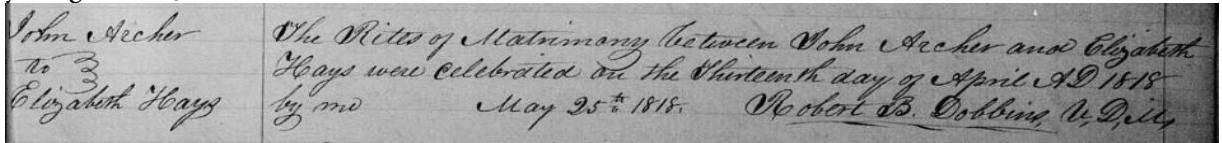 John Archer
to
Elizabeth Hays
The Rites of Matrimony between John Archer and Elizabeth
Hays were celebrated on the Thirteenth day of April AD 1818
by me May 25th 1818. Robert B. Dobbins, V, D, M,